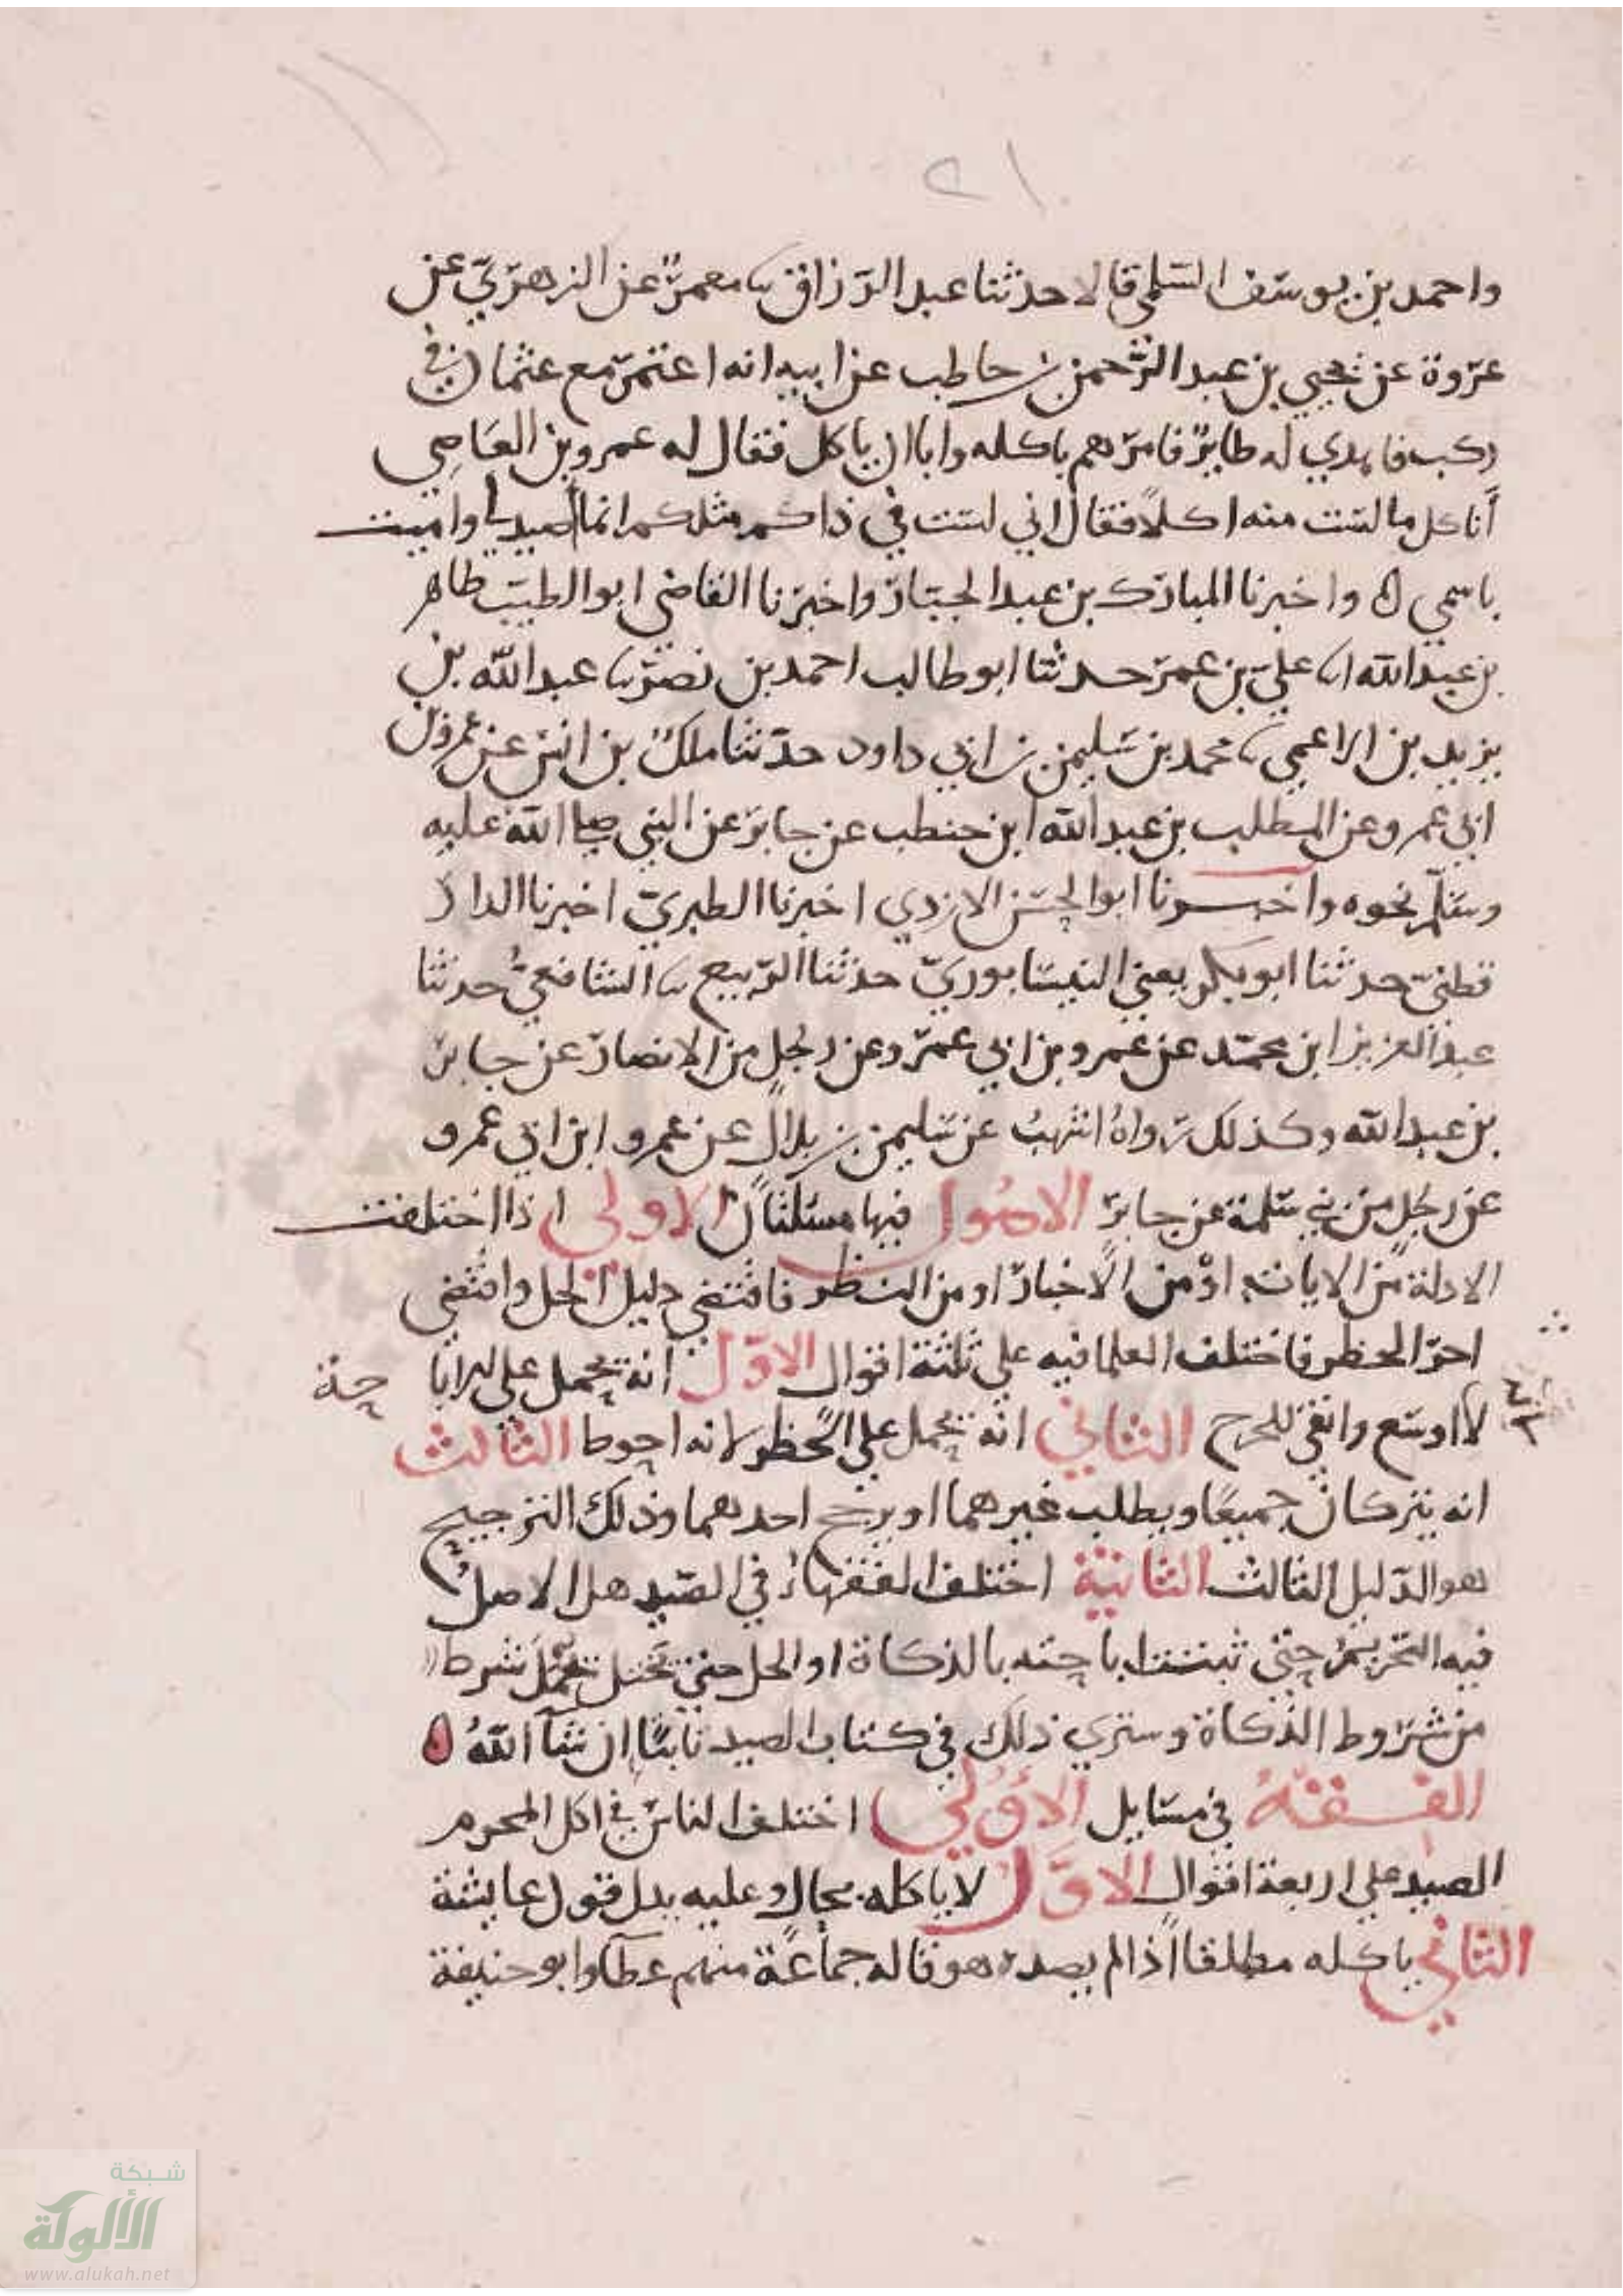 ٢١
واحمد بن يوسف السلمي قالا حدثنا عبد الرزاق نا معمر عن الزهري عن
عروة عن يحيي بن عبد الرحمن بن حاطب عن ابيه انه اعتمر مع عثمان في
ركب فاهدي له طاير فامرهم باكله وابا ان ياكل فقال له عمرو بن العاصي
أناكل مما لست منه اكلا فقال اني لست في ذاكم مثلكم انما اصيد لي واميت
باسمي ه واخبرنا المبارك بن عبد الجبار واخبرنا القاضي ابو الطيب طاهر
بن عبد الله انا علي بن عمر حدثنا ابو طالب احمد بن نصر نا عبد الله بن
يزيد بن الاعمي نا محمد بن سليمن بن ابي داود حدثنا ملك بن انس عن عمرو بن
ابي عمرو عن المطلب بن عبد الله ابن حنطب عن جابر عن النبي صلى الله عليه
وسلم نحوه واخبرنا ابو الحسن الازدي اخبرنا الطبري اخبرنا الدار
قطني حدثنا ابو بكر يعني النيسابوري حدثنا الربيع نا الشافعي حدثنا
عبد العزيز ابن محمد عن عمرو بن ابي عمرو عن رجل من الانصار عن جابر
بن عبد الله وكذلك رواه اشهب عن سليمن بن بلال عن عمرو ابن ابي عمرو
عن رجل من بني سلمة عن جابر الاصول فيها مسئلتان الاولي اذا اختلفت
الادلة من الايات او من الاخبار او من النظر فاقتضي دليل الحل واقتضي
اخر الحظر فاختلف العلما فيه علي ثلثة اقوال الاول انه يحمل علي الابا حة
لا اوسع وانفي للحرج الثاني انه يحمل علي الحظر لانه احوط الثالث
انه يتركان جميعا ويطلب غيرهما او يرجح احدهما وذلك الترجيح
هو الدليل الثالث الثانية اختلف الفقهاء في الصيد هل الاصل
فيه التحريم حتي تبتت اباحته بالذكاة او الحل حتي تختل بشرط
من شروط الذكاة وستري ذلك في كتاب الصيد ثابتا ان شآ الله ه
الفقه في مسايل الاولي اختلف الناس في اكل المحرم
الصيد علي اربعة اقوال الاول لا ياكله بحال وعليه يدل قول عايشة
الثاني ياكله مطلقا اذا لم يصده هو قاله جماعة منهم عطآ وابو حنيفة
شبكة
الألوكة
www.alukah.net